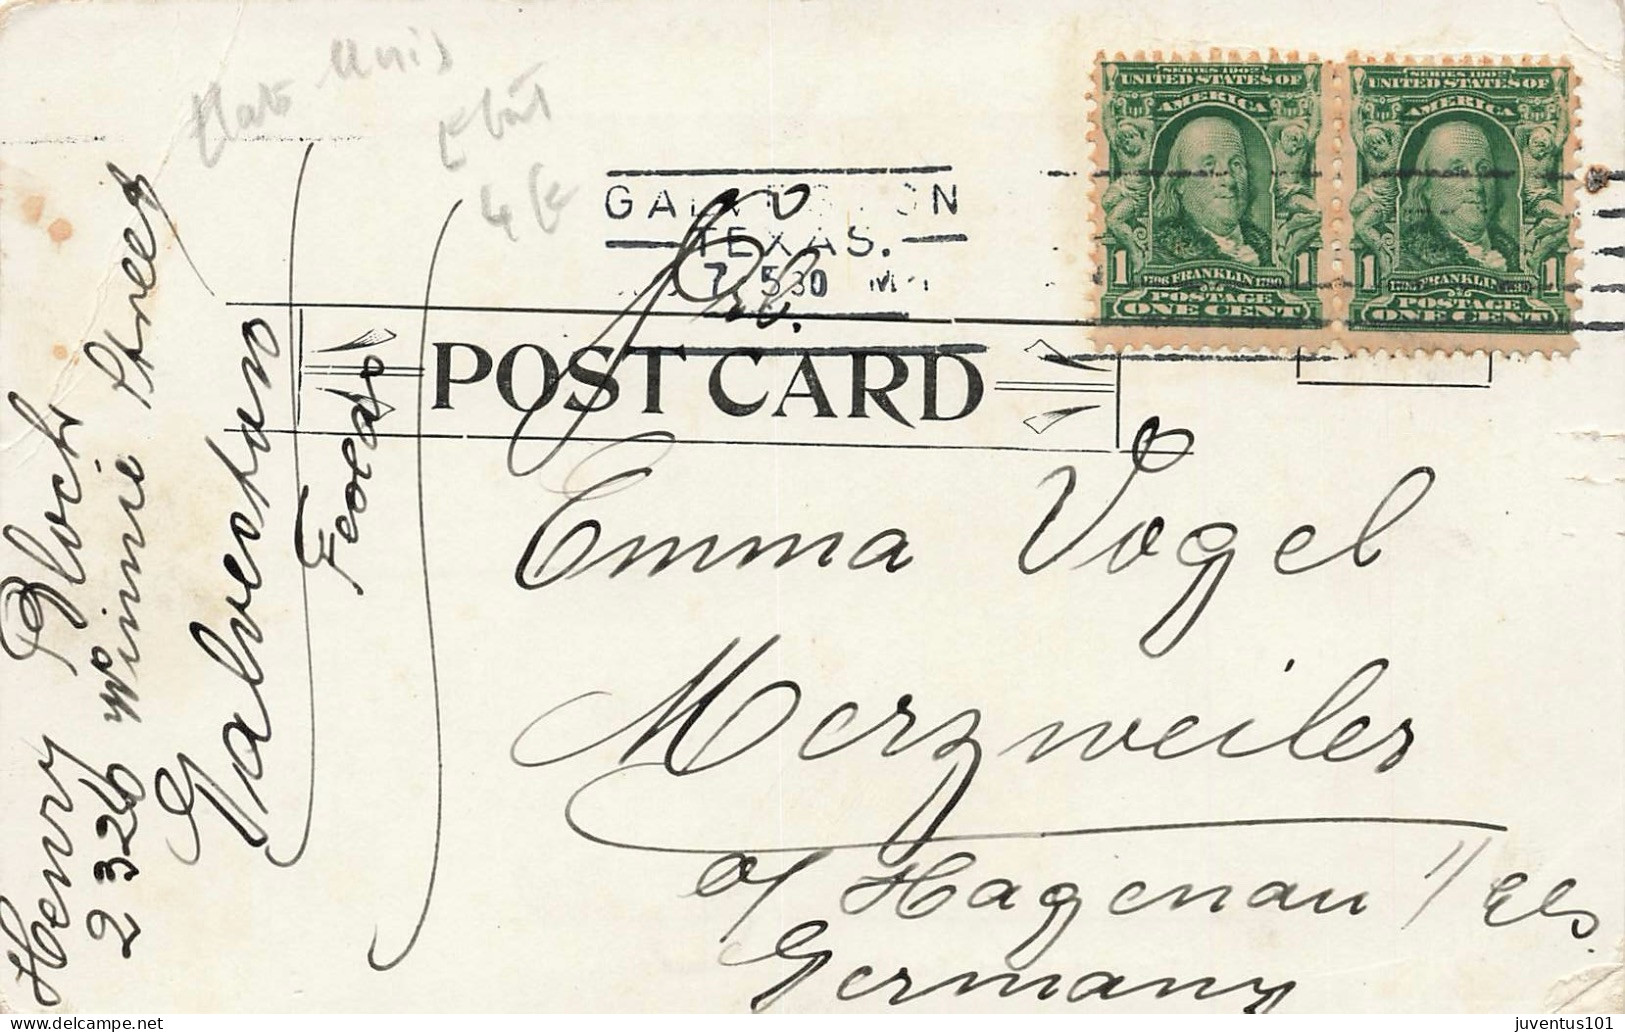 Etats Unis
Etat
4 €
SERIES 1902
UNITED STATES OF
AMERICA
1 1
1706 FRANKLIN 1790
POSTAGE
ONE CENT
SERIES 1902
UNITED STATES OF
AMERICA
1 1
1706 FRANKLIN 1790
POSTAGE
ONE CENT
GALVESTON
TEXAS.
7 530 M
POST CARD
Henry Bloch
2326 Winnie Street
Galveston
Texas
Emma Vogel
Merzweiler
a/ Hagenau / Els.
Germany
juventus101